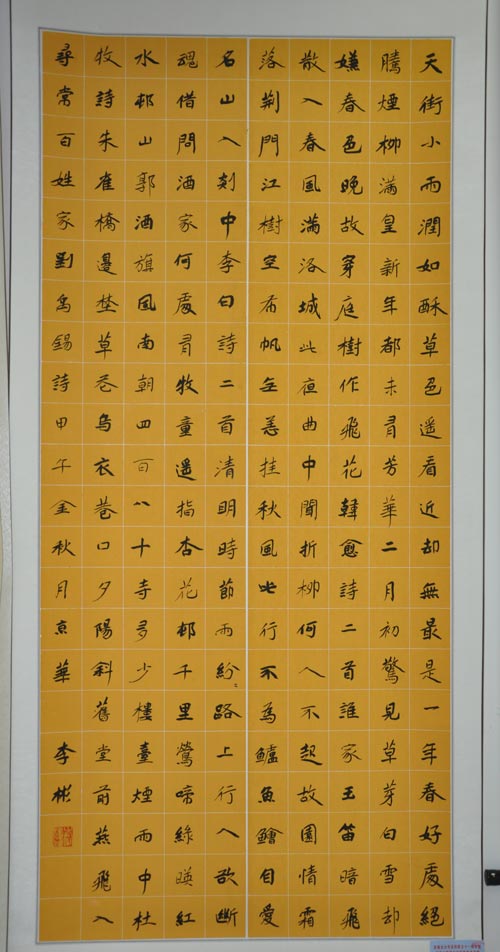 天街小雨潤如酥草色遥看近却無最是一年春好處絕
勝煙柳滿皇新年都未有芳華二月初驚見草芽白雪却
嫌春色晚故穿庭樹作飛花韓愈詩二首誰家玉笛暗飛
散入春風滿洛城此夜曲中聞折柳何人不起故園情霜
落荊門江樹空布帆无恙挂秋風此行不為鱸魚鱠自愛
名山入剡中李白詩二首清明時節雨紛〻路上行人欲斷
魂借問酒家何處有牧童遥指杏花邨千里鶯啼綠暎紅
水邨山郭酒旗風南朝四百八十寺多少樓臺煙雨中杜
牧詩朱雀橋邊埜草花烏衣巷口夕陽斜舊堂前燕飛入
尋常百姓家劉禹錫詩甲午金秋月京華 李彬